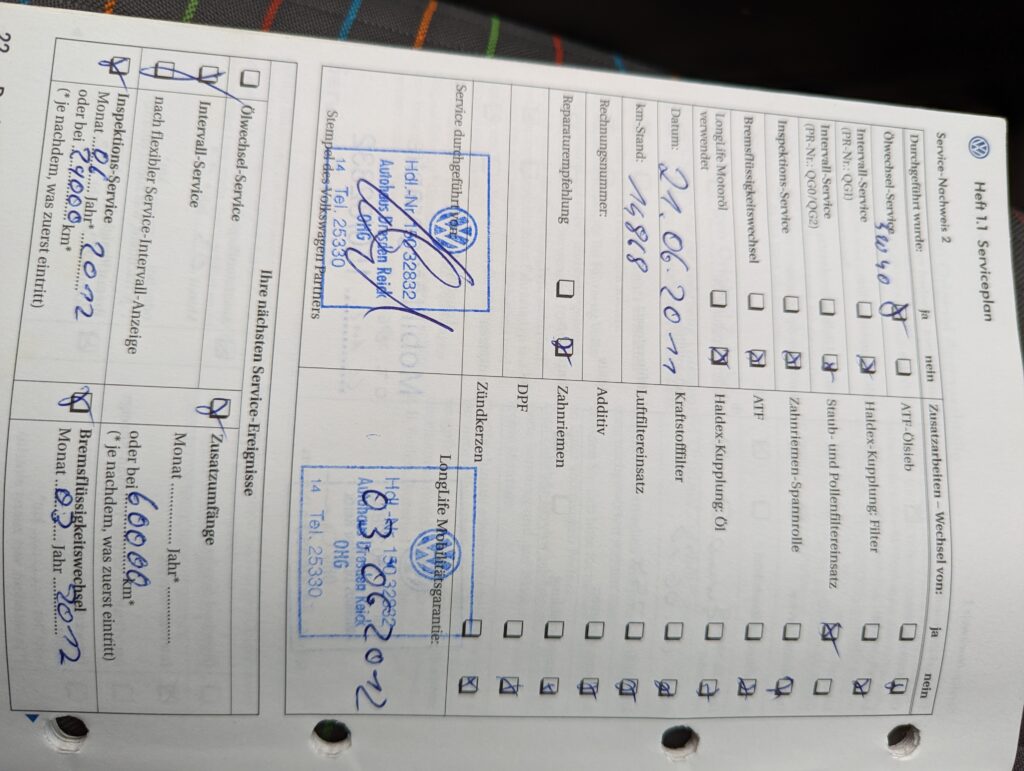 Heft 1.1 Serviceplan
Service-Nachweis 2
Durchgeführt wurde: ja nein
Ölwechsel-Service 5W40
Intervall-Service
(PR-Nr.: QG1)
Intervall-Service
(PR-Nr.: QG0/QG2)
Inspektions-Service
Bremsflüssigkeitswechsel
LongLife Motoröl
verwendet
Datum: 21.06.2011
km-Stand: 14868
Rechnungsnummer:
Reparaturempfehlung
Service durchgeführt von:
Hdl.-Nr. 15032832
Autohaus Dresden Reick
OHG
14 Tel. 25330
Stempel des Volkswagen Partners
Zusatzarbeiten – Wechsel von: ja nein
ATF-Ölsieb
Haldex-Kupplung: Filter
Staub- und Pollenfiltereinsatz
Zahnriemen-Spannrolle
ATF
Haldex-Kupplung: Öl
Kraftstofffilter
Luftfiltereinsatz
Additiv
Zahnriemen
DPF
Zündkerzen
LongLife Mobilitätsgarantie:
Hdl.-Nr. 15032832
Autohaus Dresden Reick
OHG
14 Tel. 25330
03 06 2012
Ihre nächsten Service-Ereignisse
Ölwechsel-Service
Intervall-Service
nach flexibler Service-Intervall-Anzeige
Inspektions-Service
Monat 06 Jahr* 2012
oder bei km*
(* je nachdem, was zuerst eintritt)
Zusatzumfänge
Monat Jahr*
oder bei 60000 km*
(* je nachdem, was zuerst eintritt)
Bremsflüssigkeitswechsel
Monat 03 Jahr 2012
22